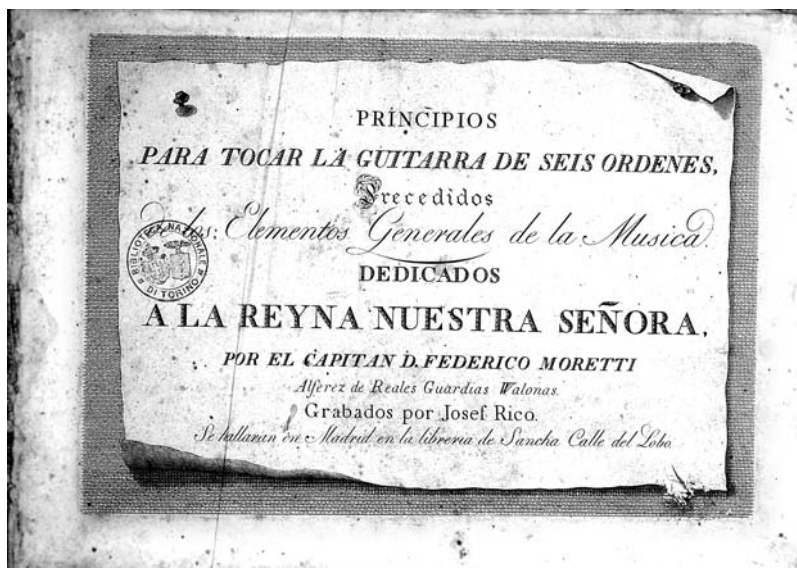 PRINCIPIOS
PARA TOCAR LA GUITARRA DE SEIS ORDENES,
Precedidos
de los Elementos Generales de la Musica
DEDICADOS
A LA REYNA NUESTRA SEÑORA,
POR EL CAPITAN D. FEDERICO MORETTI
Alferez de Reales Guardias Walonas.
Grabados por Josef Rico.
Se hallaran en Madrid en la libreria de Sancha Calle del Lobo.
BIBLIOTECA NAZIONALE
DI TORINO